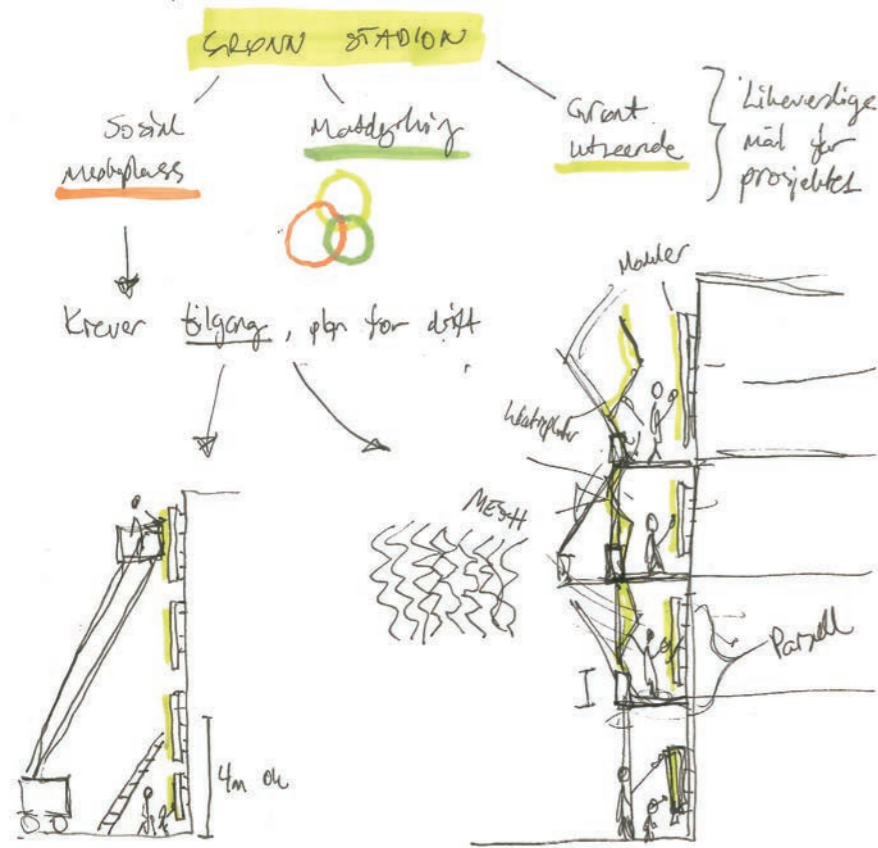 GRØNN STADION
Sosial
møteplass
Matdyrking
Grønt
utseende
Likeverdige
mål for
prosjektet
Krever tilgang, plan for drift
Moduler
MESH
Parsell
4m ok